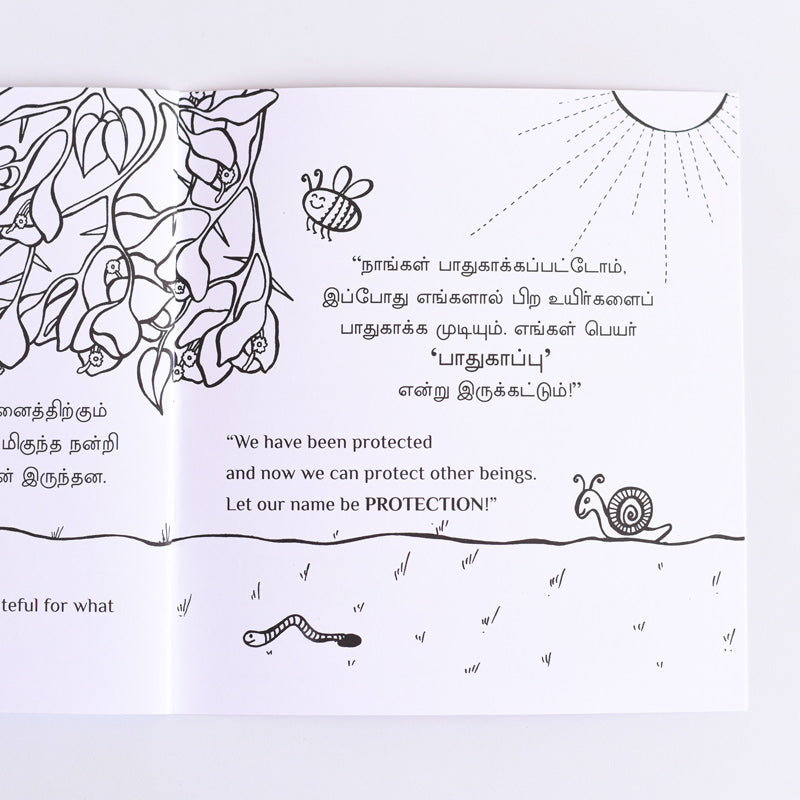 னைத்திற்கும்
மிகுந்த நன்றி
ன் இருந்தன.
teful for what
“நாங்கள் பாதுகாக்கப்பட்டோம்,
இப்போது எங்களால் பிற உயிர்களைப்
பாதுகாக்க முடியும். எங்கள் பெயர்
‘பாதுகாப்பு’
என்று இருக்கட்டும்!”
“We have been protected
and now we can protect other beings.
Let our name be PROTECTION!”